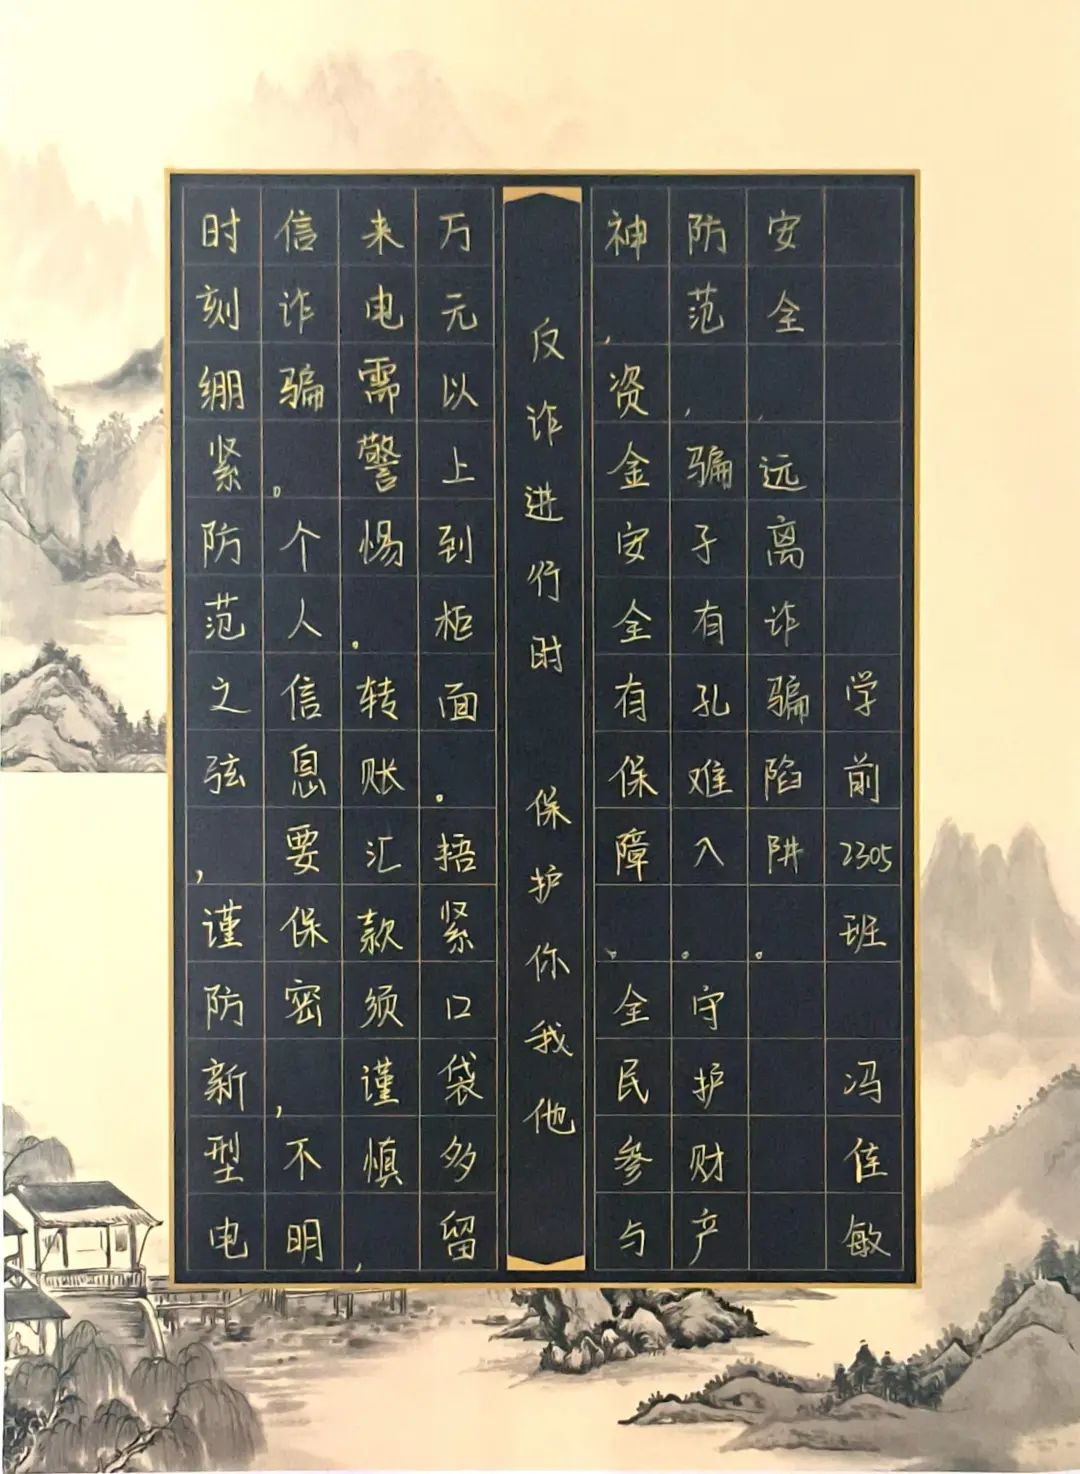 时刻绷紧防范之弦，谨防新型电
信诈骗。个人信息要保密，不明
来电需警惕。转账汇款须谨慎，
万元以上到柜面。捂紧口袋多留
反诈进行时 保护你我他
神，资金安全有保障。全民参与
防范，骗子有孔难入。守护财产
安全，远离诈骗陷阱。
学前2305班 冯佳敏